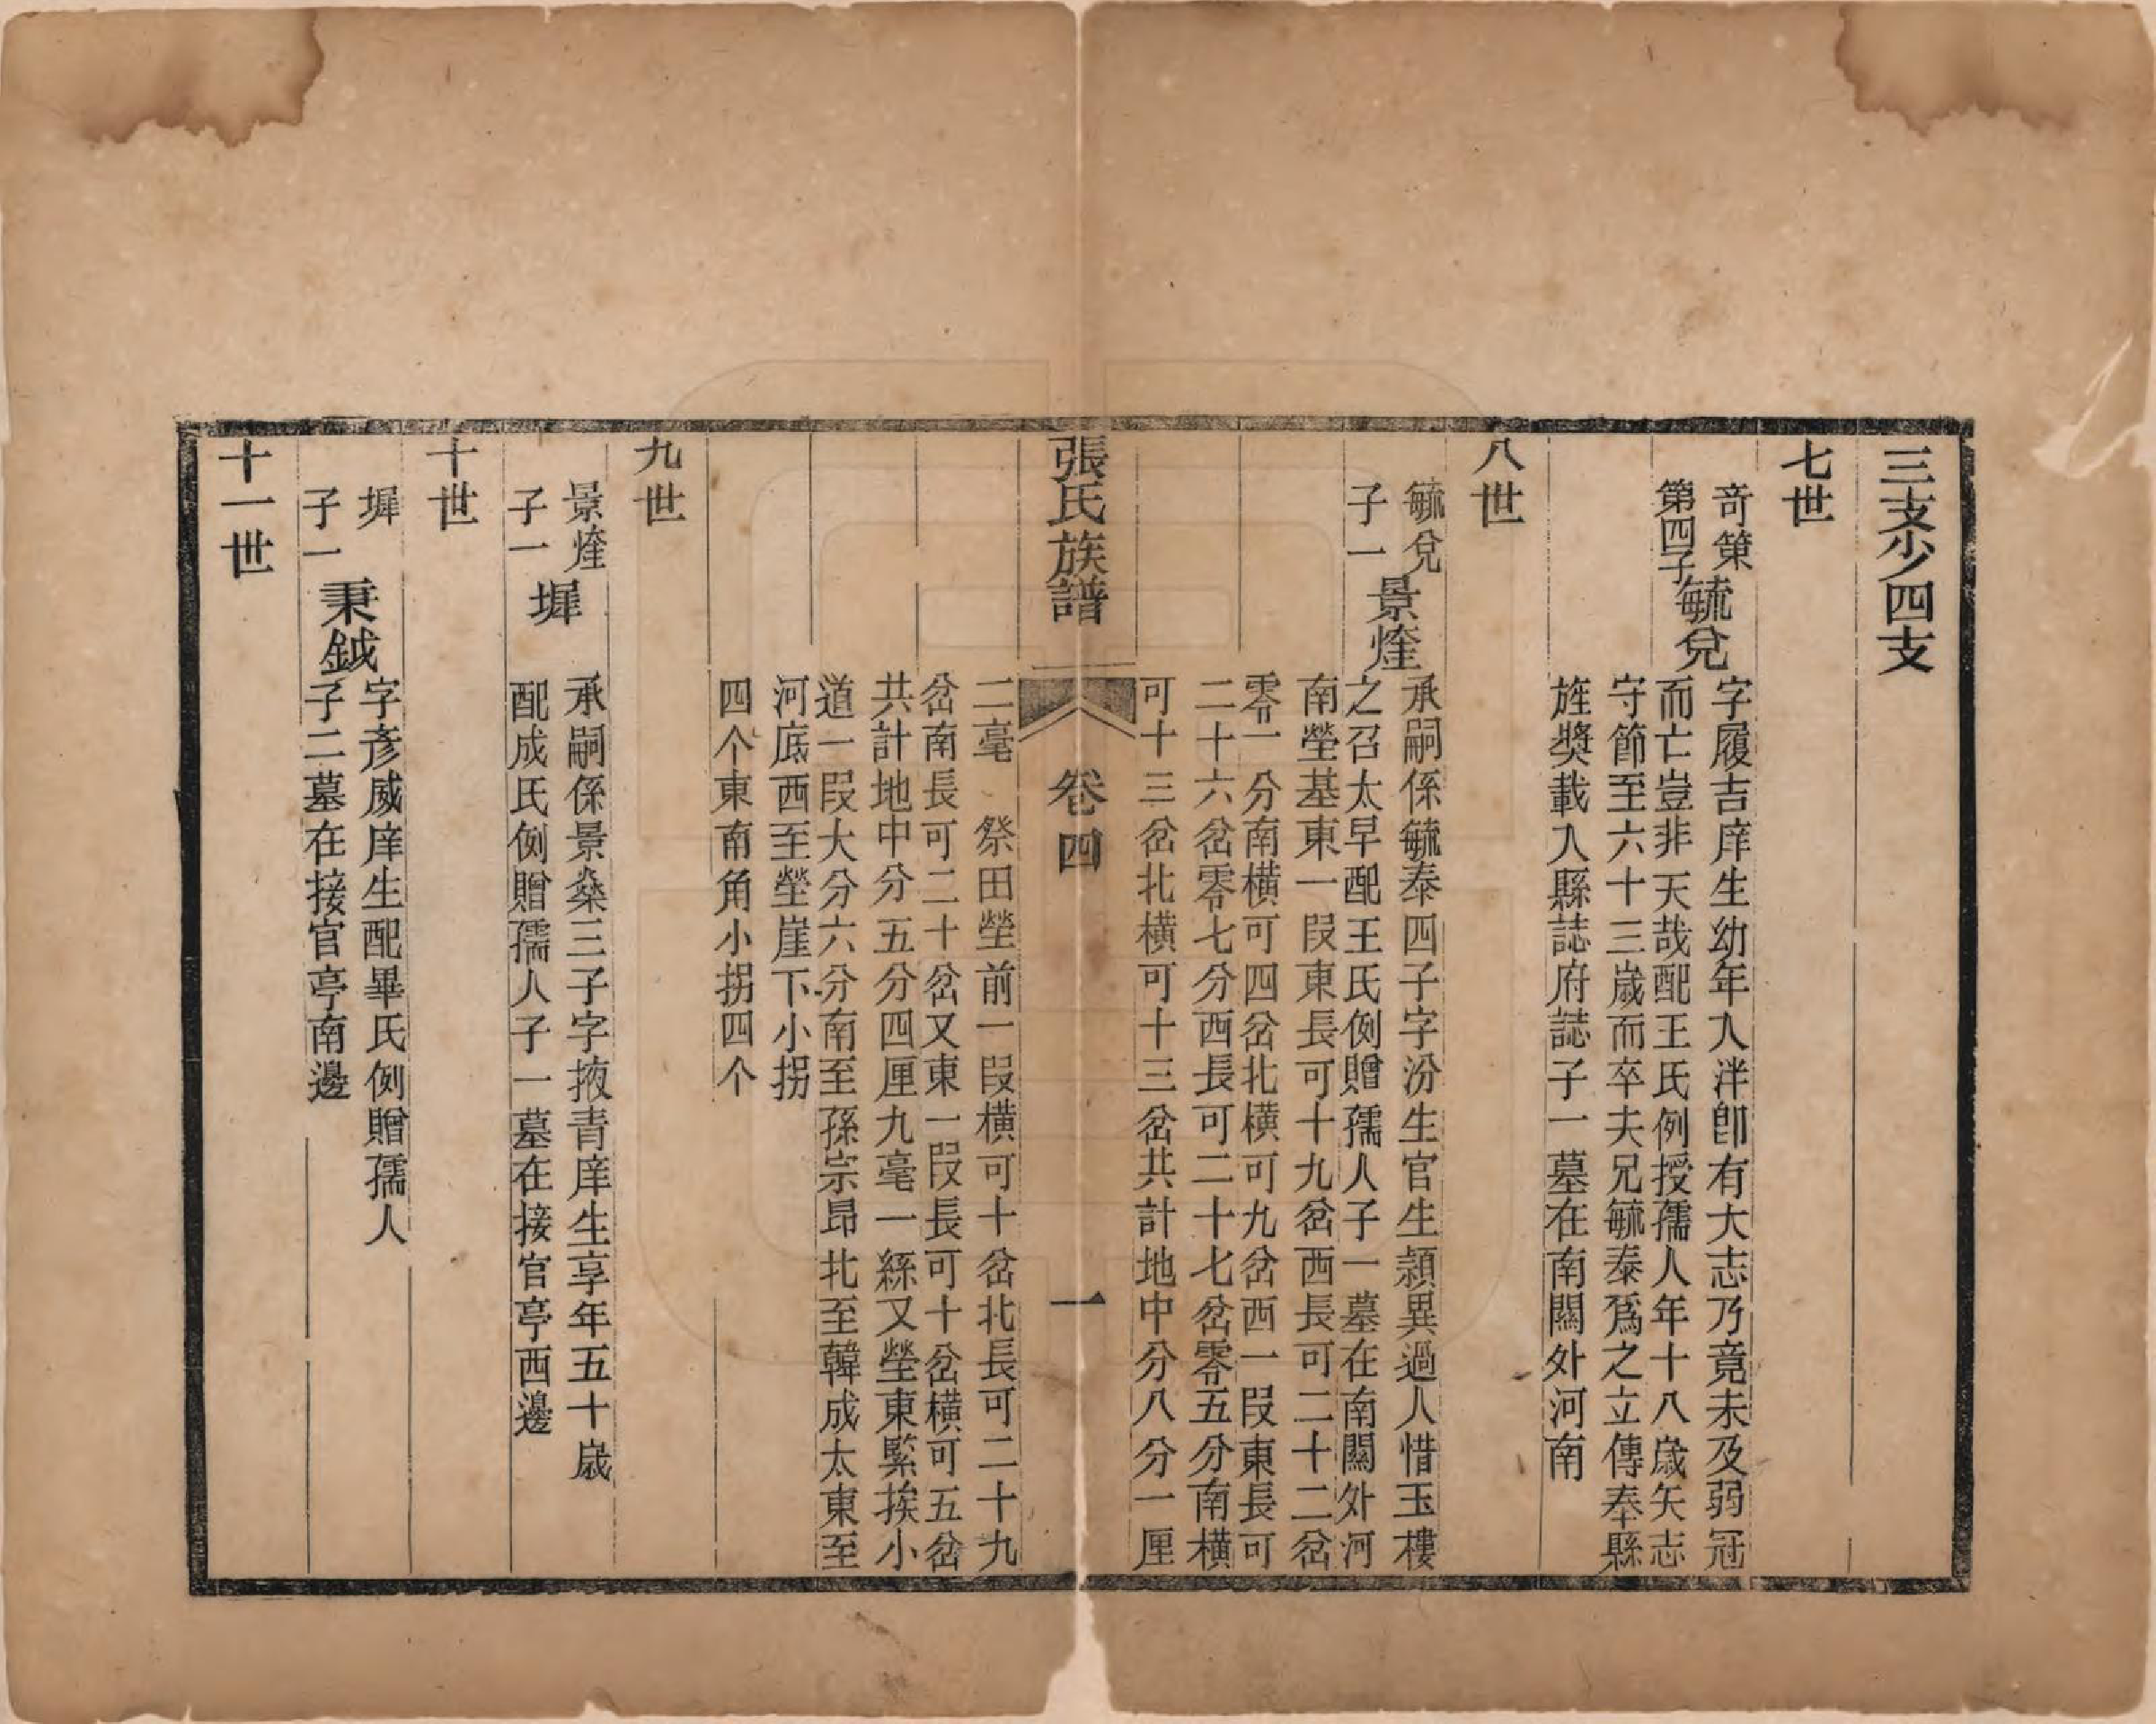 三支少四支
七世
奇策
第四子
毓兌
字履吉庠生幼年入泮卽有大志乃竟未及弱冠
而亡豈非天哉配王氏例授孺人年十八歲矢志
守節至六十三歲而卒夫兄毓泰爲之立傳奉縣
旌獎載入縣誌府誌子一墓在南關外河南
八世
毓兌
子一
景煃
承嗣係毓泰四子字汾生官生頴異過人惜玉樓
之召太早配王氏例贈孺人子一墓在南關外河
南塋基東一段東長可十九岔西長可二十二岔
零一分南橫可四岔北橫可九岔西一段東長可
二十六岔零七分西長可二十七岔零五分南橫
可十三岔北橫可十三岔共計地中分八分一厘
張氏族譜
卷四
一
二毫 祭田塋前一段橫可十岔北長可二十九
岔南長可二十岔又東一段長可十岔橫可五岔
共計地中分五分四厘九毫一絲又塋東緊挨小
道一段大分六分南至孫宗昻北至韓成太東至
河底西至塋崖下小拐
四个東南角小拐四个
九世
景煃
子一
墀
承嗣係景燊三子字掖青庠生享年五十歲
配成氏例贈孺人子一墓在接官亭西邊
十世
墀
子一
秉鉞
字彥威庠生配畢氏例贈孺人
子二墓在接官亭南邊
十一世